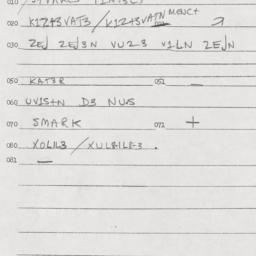 020 K1Z+3VAT3 / K1Z+3VATN MENC+
030 ZEJ ZEJ3N VU2-3 V1LN ZEJN
050 KAT3R 051 —
060 UV1S+N D3 NUS
070 SMARK 072 +
080 XOL1L3 / XUL8-1L8-3 .
081 —